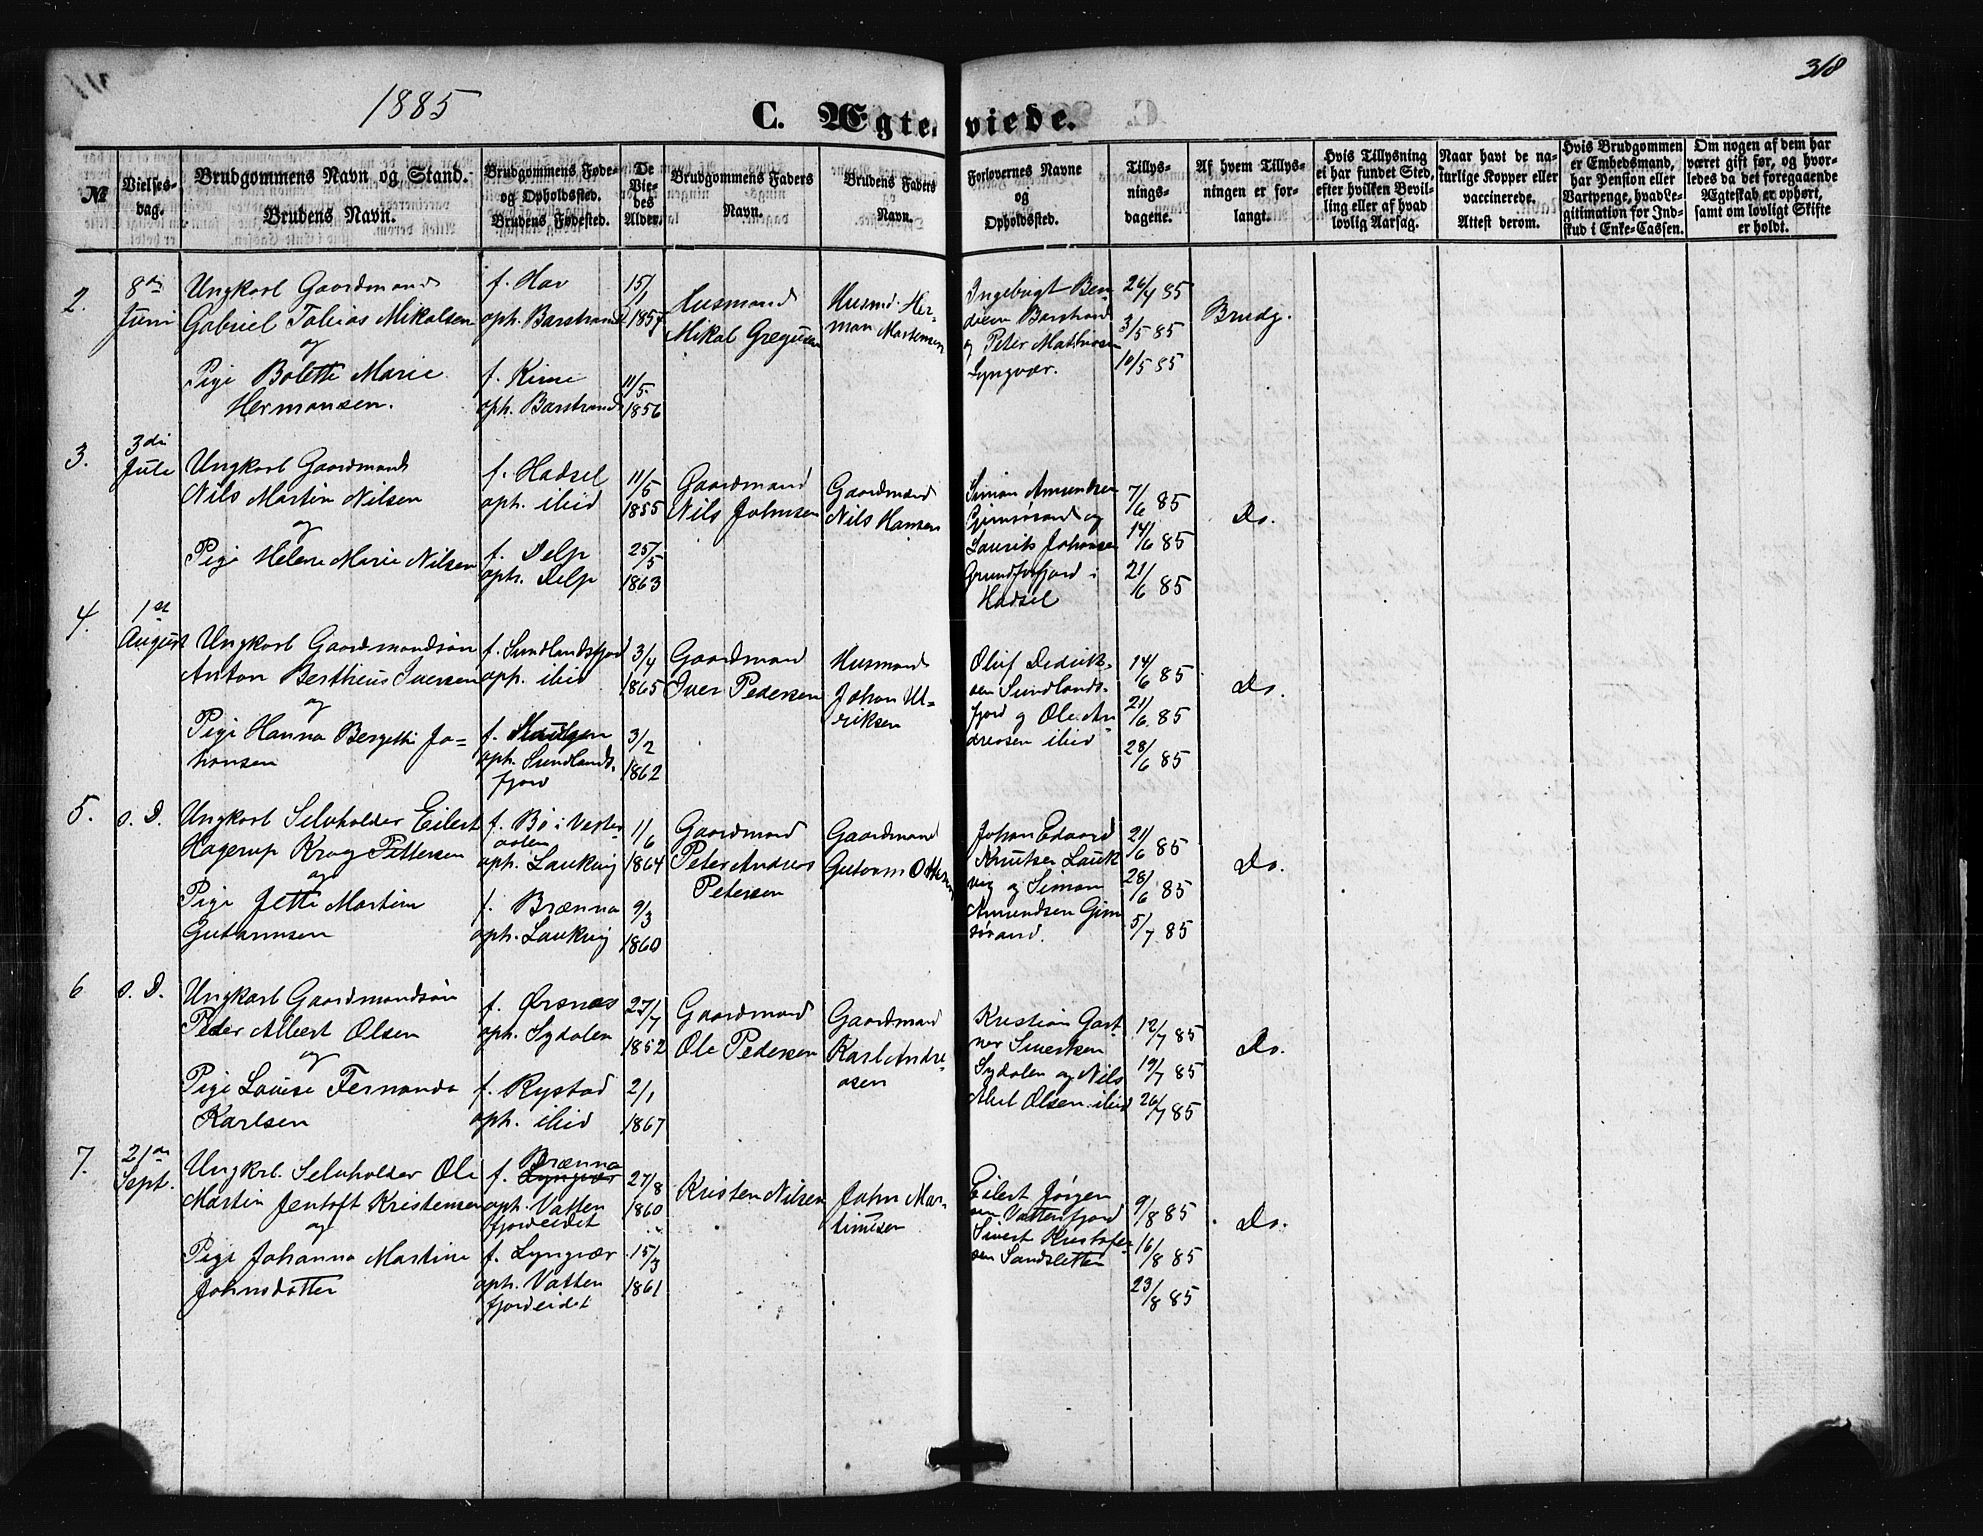 318
1885
C. Ægteviede.
№
Vielses-
dag.
Brudgommens Navn og Stand.
Brudens Navn.
Brudgommens Føde-
og Opholdssted.
Brudens Fødested.
De
Vie-
des
Alder.
Brudgommens Faders
Navn.
Brudens Faders
Navn.
Forlovernes Navne
og
Opholdssted.
Tillys-
nings-
dagene.
Af hvem Tillys-
ningen er for-
langt.
Hvis Tillysning
ei har fundet Sted,
efter hvilken Bevil-
ling eller af hvad
lovlig Aarsag.
Naar havt de na-
turlige Kopper eller
vaccinerede.
Attest derom.
Hvis Brudgommen
er Embedsmand,
har Pension eller
Vartpenge, hvad Le-
gitimation for Ind-
skud i Enke-Cassen.
Om nogen af dem har
været gift før, og hvor-
ledes da det foregaaende
Ægteskab er ophørt,
samt om lovligt Skifte
er holdt.
2.
8de
Juni
Ungkarl Gaardmand
Gabriel Tobias Mikalsen
og
Pige Bolette Marie
Hermansen.
f. Hov
oph. Barstrand
f. Kime
oph. Barstrand
15/1
1857
11/5
1856
Husmand
Mikal Gregusen
Husmd. Her-
man Martensen
Ingebrigt Ben-
diksen Barstrand
og Peter Mathisen
Lyngvær.
26/4 85
3/5 85
10/5 85
Brudg.
3.
3die
Juli
Ungkarl Gaardmand
Nils Martin Nilsen
og
Pige Helene Marie Nilsen
f. Hadsel
oph. ibid
f. Delp
oph. Delp
11/5
1855
25/5
1863
Gaardmand
Nils Johnsen
Gaardmand
Nils Hansen
Simon Amundsen
Gimsøsand og
Laurits Johansen
Grundforfjord i
Hadsel
7/6 85
14/6 85
21/6 85
Do.
4.
1st
August
Ungkarl Gaardmandsøn
Anton Bertheus Iversen
og
Pige Hanna Bergette Jo-
hansen
f. Sundlandsfjord
oph. ibid
f.
oph. Sundlands-
fjord
3/4
1865
3/2
1862
Gaardmand
Iver Pedersen
Husmand
Johan Ul-
riksen
Oluf Dedrik-
sen Sundlands-
fjord og Ole An-
dreasen ibid
14/6 85
21/6 85
28/6 85
Do.
5.
s. D.
Ungkarl Selvholder Eilert
Hagerup Krog Pettersen
og
Pige Jette Martine
Gutormsen
f. Bø i Vester-
aalen
oph. Laukvig
f. Brænna
oph. Laukvig
1/6
1864
9/3
1860
Gaardmand
Peter Andreas
Petersen
Gaardmand
Gutorm Ottesen
Johan Edvard
Knutsen Lauk-
vig og Simon
Amundsen Gim-
søsand.
21/6 85
28/6 85
5/7 85
Do.
6
s. D.
Ungkarl Gaardmandsøn
Peder Albert Olsen
og
Pige Louise Fernanda
Karlsen
f. Ørsnæs
oph. Sydalen
f. Rystad
oph. ibid
27/7
1852
2/1
1867
Gaardmand
Ole Pedersen
Gaardmand
Karl Andre-
asen
Kristian Gart-
ner Sivertsen
Sydalen og Nils
Abel Olsen ibid
12/7 85
19/7 85
26/7 85
Do.
7.
21de
Sept.
Ungkrl. Selvholder Ole
Martin Jentoft Kristensen
og
Pige Johanna Martine
Johnsdatter
Brænna
f. Lyngvær
oph. Vatten
fjordeidet
f. Lyngvær
oph. Vatten
fjordeidet
27/8
1860
15/3
1861
Kristen Nilsen
John Mar-
tinusen
Eilert Jørgen
sen Vattenfjord
Sivert Kristofer-
sen Sandsletten
9/8 85
16/8 85
23/8 85
Do.